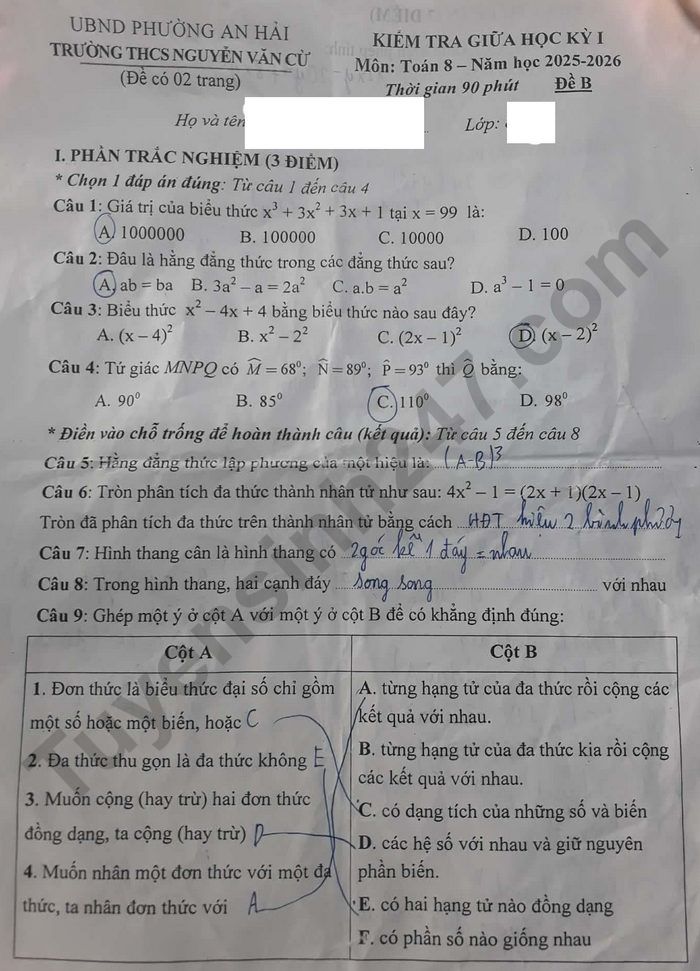 UBND PHƯỜNG AN HẢI
TRƯỜNG THCS NGUYỄN VĂN CỪ
(Đề có 02 trang)
KIỂM TRA GIỮA HỌC KỲ I
Môn: Toán 8 – Năm học 2025-2026
Thời gian 90 phút Đề B
Họ và tên
Lớp:
I. PHẦN TRẮC NGHIỆM (3 ĐIỂM)
* Chọn 1 đáp án đúng: Từ câu 1 đến câu 4
Câu 1: Giá trị của biểu thức x³ + 3x² + 3x + 1 tại x = 99 là:
A. 1000000 B. 100000 C. 10000 D. 100
Câu 2: Đâu là hằng đẳng thức trong các đẳng thức sau?
A. ab = ba B. 3a² – a = 2a² C. a.b = a² D. a³ – 1 = 0
Câu 3: Biểu thức x² – 4x + 4 bằng biểu thức nào sau đây?
A. (x – 4)² B. x² – 2² C. (2x – 1)² D. (x – 2)²
Câu 4: Tứ giác MNPQ có M̂ = 68⁰; N̂ = 89⁰; P̂ = 93⁰ thì Q̂ bằng:
A. 90⁰ B. 85⁰ C. 110⁰ D. 98⁰
* Điền vào chỗ trống để hoàn thành câu (kết quả): Từ câu 5 đến câu 8
Câu 5: Hằng đẳng thức lập phương của một hiệu là: (A-B)³
Câu 6: Tròn phân tích đa thức thành nhân tử như sau: 4x² – 1 = (2x + 1)(2x – 1)
Tròn đã phân tích đa thức trên thành nhân tử bằng cách HĐT hiệu 2 bình phương
Câu 7: Hình thang cân là hình thang có 2 góc kề 1 đáy = nhau
Câu 8: Trong hình thang, hai cạnh đáy song song với nhau
Câu 9: Ghép một ý ở cột A với một ý ở cột B để có khẳng định đúng:
Cột A
1. Đơn thức là biểu thức đại số chỉ gồm
một số hoặc một biến, hoặc C
2. Đa thức thu gọn là đa thức không E
3. Muốn cộng (hay trừ) hai đơn thức
đồng dạng, ta cộng (hay trừ) D
4. Muốn nhân một đơn thức với một đa
thức, ta nhân đơn thức với A
Cột B
A. từng hạng tử của đa thức rồi cộng các
kết quả với nhau.
B. từng hạng tử của đa thức kia rồi cộng
các kết quả với nhau.
C. có dạng tích của những số và biến
D. các hệ số với nhau và giữ nguyên
phần biến.
E. có hai hạng tử nào đồng dạng
F. có phần số nào giống nhau
Tuyensinh247.com